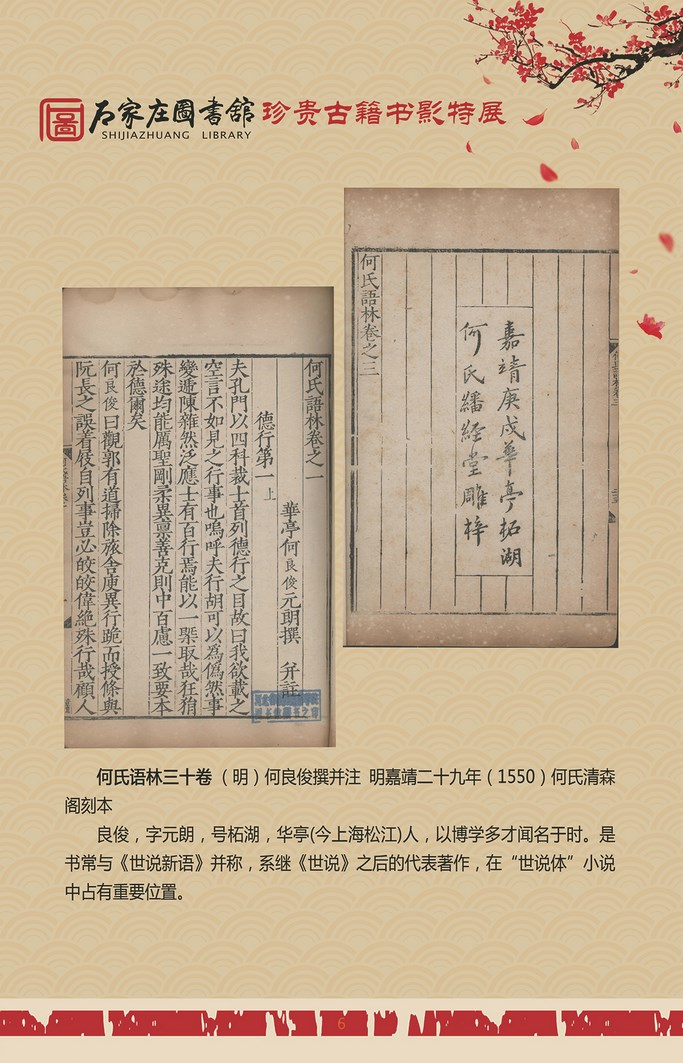 石家庄圖書舘 珍贵古籍书影特展
SHIJIAZHUANG LIBRARY
何氏語林卷之三
嘉靖庚戌華亭柘湖
何氏繙經堂雕梓
何氏語林卷之一
華亭何良俊元朗撰 并註
德行第一上
夫孔門以四科裁士首列德行之目故曰我欲載之
空言不如見之行事也嗚呼夫行胡可以為偽然事
變遞陳雜然泛應士有百行焉能以一槩取哉狂狷
殊途均能厲聖剛柔異稟善克則中百慮一致要本
於德爾矣
何良俊曰觀郭有道掃除旅舍庾異行跪而授條與
阮長之誤着屐自列事豈必皎皎偉絶殊行哉顧人
何氏语林三十卷（明）何良俊撰并注 明嘉靖二十九年（1550）何氏清森
阁刻本
良俊，字元朗，号柘湖，华亭(今上海松江)人，以博学多才闻名于时。是
书常与《世说新语》并称，系继《世说》之后的代表著作，在“世说体”小说
中占有重要位置。
6